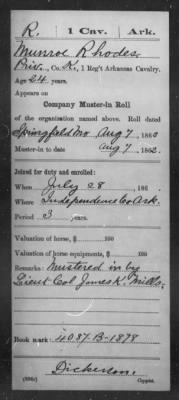 R. 1 Cav. Ark.
Munroe Rhodes
Priv., Co. K, 1 Reg't Arkansas Cavalry.
Age 24 years.
Appears on
Company Muster-in Roll
of the organization named above. Roll dated
Springfield Mo Aug 7, 1862
Muster-in to date Aug 7, 1862.
Joined for duty and enrolled:
When July 28, 186
Where Independence Co Ark.
Period 3 years.
Valuation of horse, $ 100
Valuation of horse equipments, $ 100
Remarks: Mustered in by
Lieut Col James K. Mills.
Book mark: 4087-B-1878
Dickerson.
Copyist.